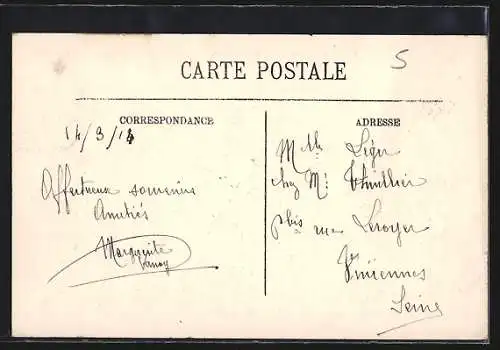 CARTE POSTALE
5
CORRESPONDANCE
14/3/14
Affectueux souvenirs
Amitiés
Marguerite
ADRESSE
Mlle Léger
chez Mr Thuillier
bis rue Leroyer
Vincennes
Seine